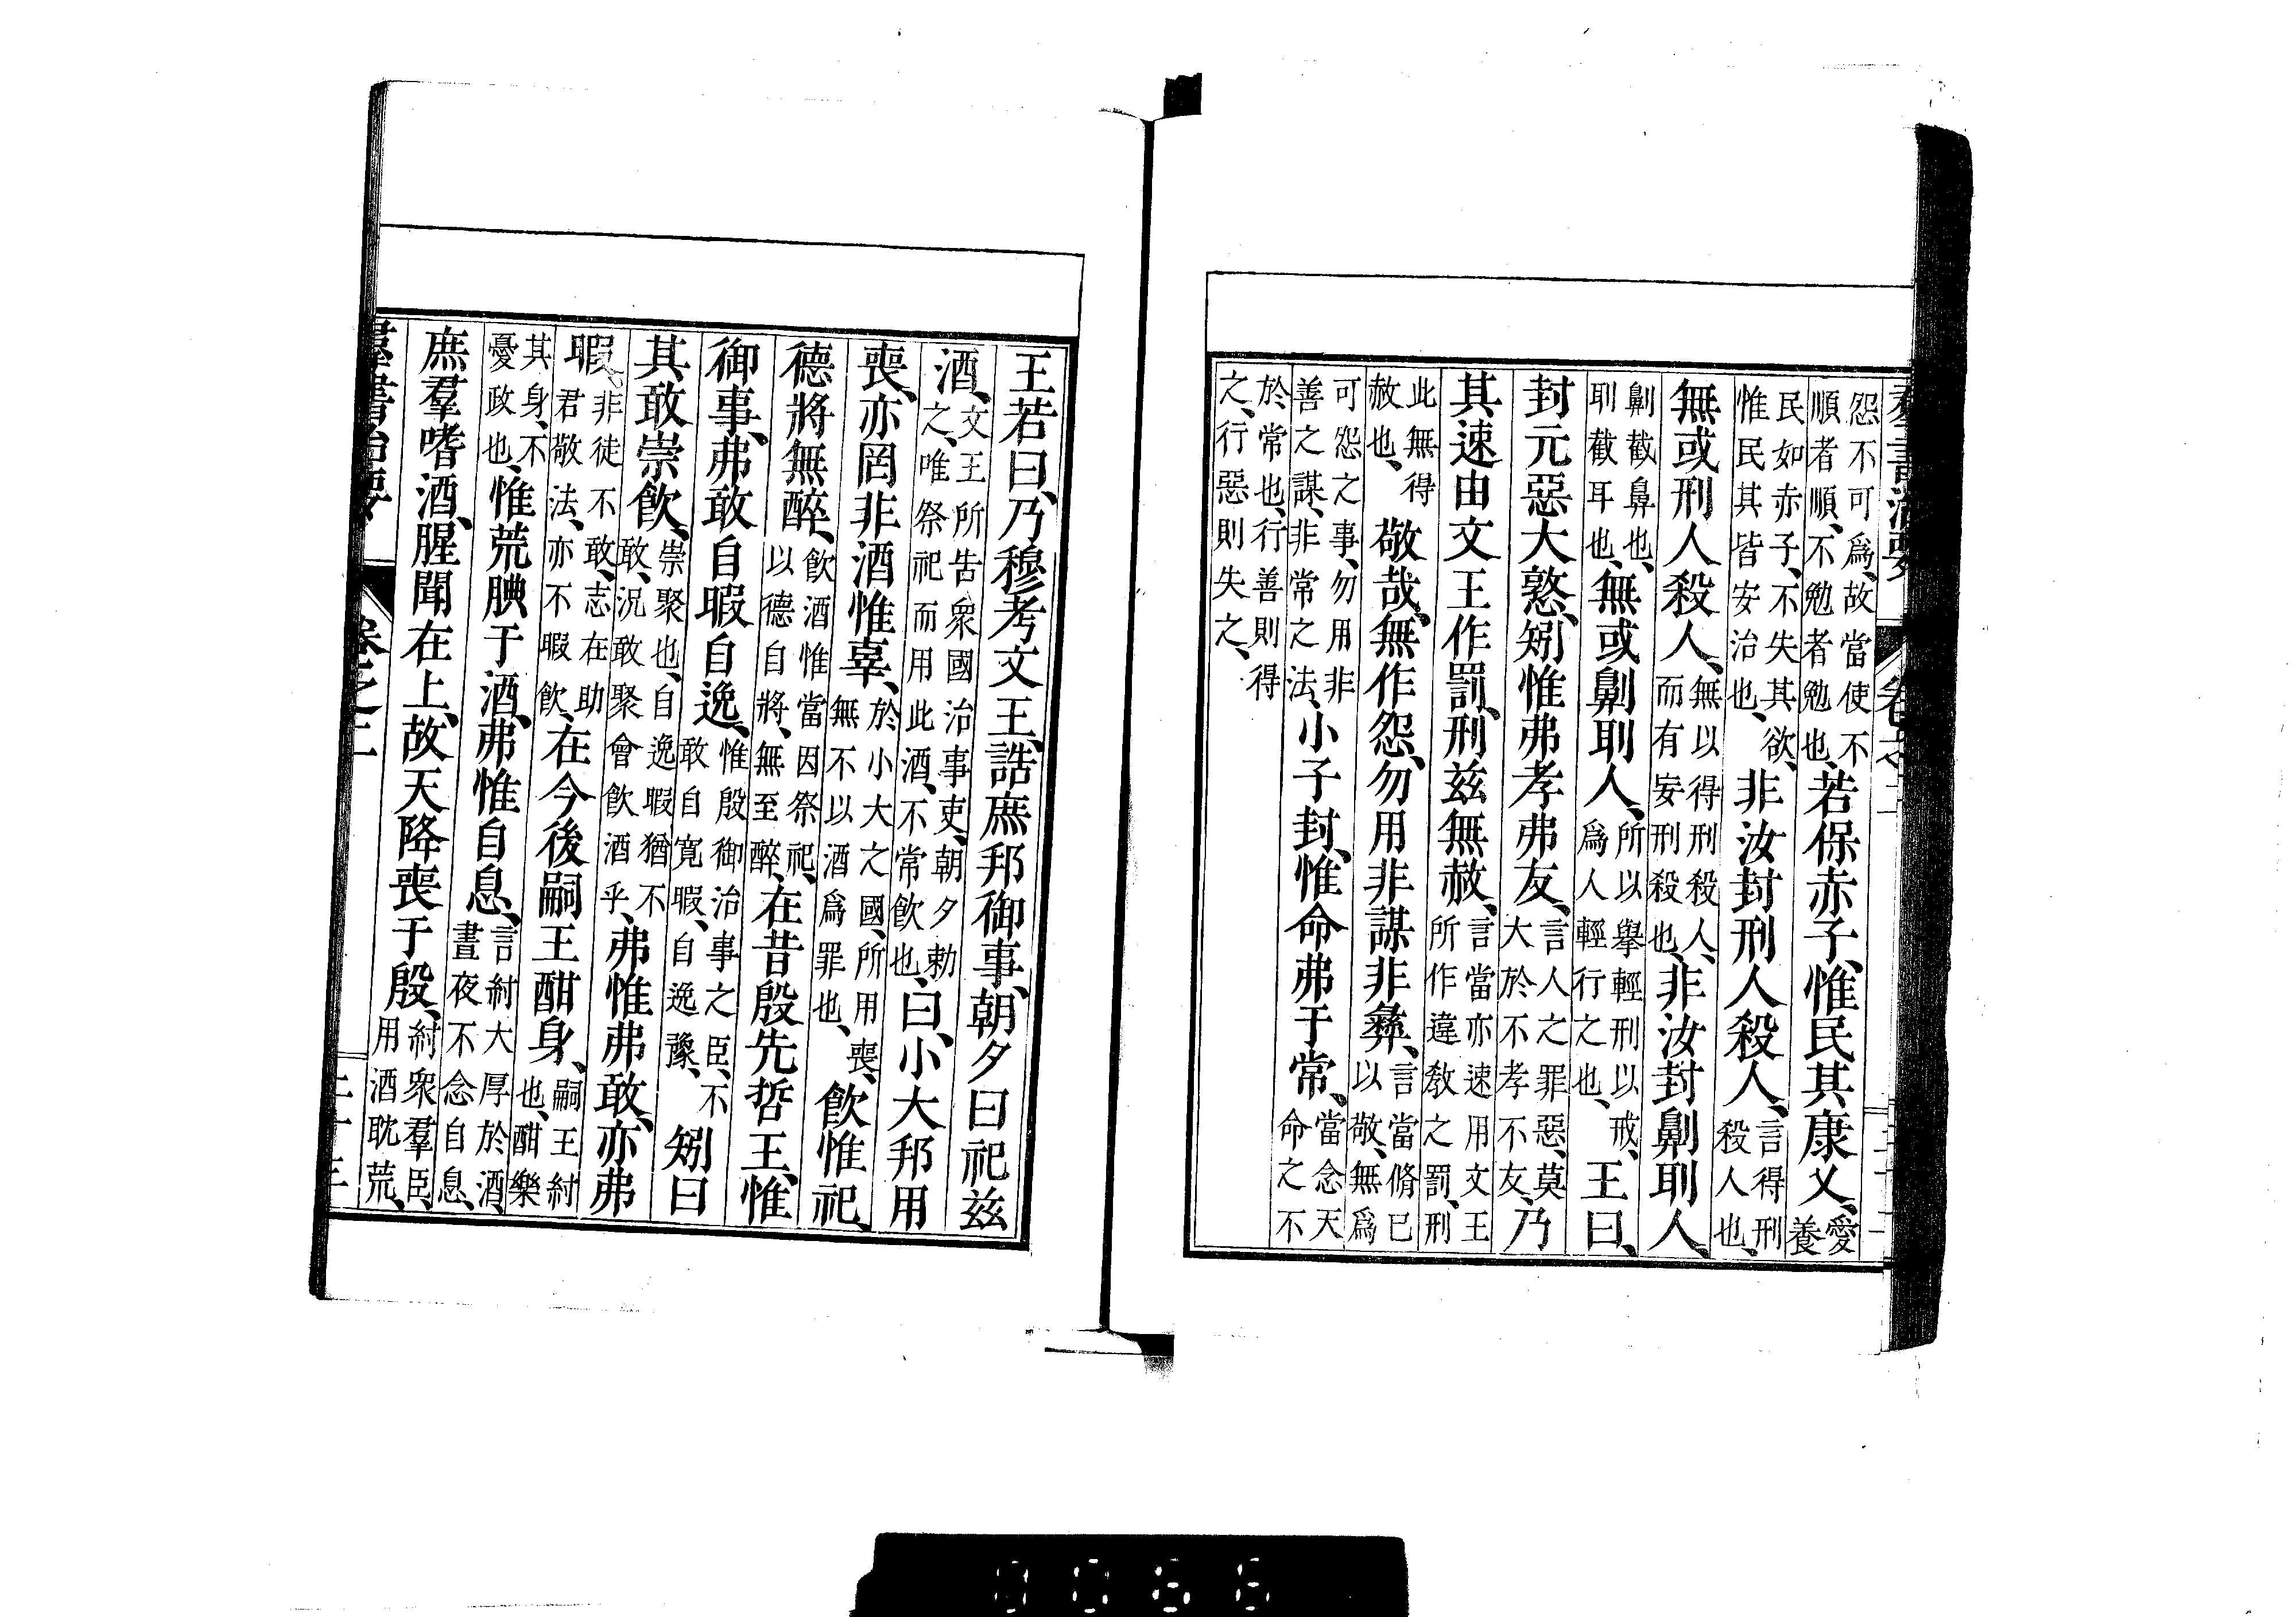 羣書治要 卷之二
怨不可爲、故當使不順者順、不勉者勉也、若保赤子、惟民其康乂、愛養
民如赤子、不失其欲、惟民其皆安治也、非汝封刑人殺人、言得刑殺人也、
無或刑人殺人、無以得刑殺人、而有妄刑殺也、非汝封劓刵人、
劓截鼻也、刵截耳也、無或劓刵人、所以擧輕刑以戒、爲人輕行之也、王曰、
封元惡大憝、矧惟弗孝弗友、言人之罪惡、莫大於不孝不友、乃
其速由文王作罰、刑兹無赦、言當亦速用文王所作違敎之罰、刑
此無得赦也、敬哉、無作怨、勿用非謀非彝、言當脩己以敬、無爲
可怨之事、勿用非善之謀、非常之法、小子封、惟命弗于常、當念天命之不
於常也、行善則得之、行惡則失之、
王若曰、乃穆考文王、誥庶邦御事、朝夕曰祀兹
酒、文王所告衆國治事吏、朝夕勅之、唯祭祀而用此酒、不常飮也、曰、小大邦用
喪、亦罔非酒惟辜、於小大之國、所用喪、無不以酒爲罪也、飮惟祀、
德將無醉、飮酒惟當因祭祀、以德自將、無至醉、在昔殷先哲王、惟
御事、弗敢自暇自逸、惟殷御治事之臣、不敢自寬暇、自逸豫、矧曰
其敢崇飮、崇聚也、自逸暇猶不敢、況敢聚會飮酒乎、弗惟弗敢、亦弗
暇、非徒不敢、志在助君敬法、亦不暇飮、在今後嗣王酣身、嗣王紂也、酣樂
其身、不憂政也、惟荒腆于酒、弗惟自息、言紂大厚於酒、晝夜不念自息、
庶羣嗜酒、腥聞在上、故天降喪于殷、紂衆羣臣、用酒耽荒、
羣書治要 卷之二 二十三